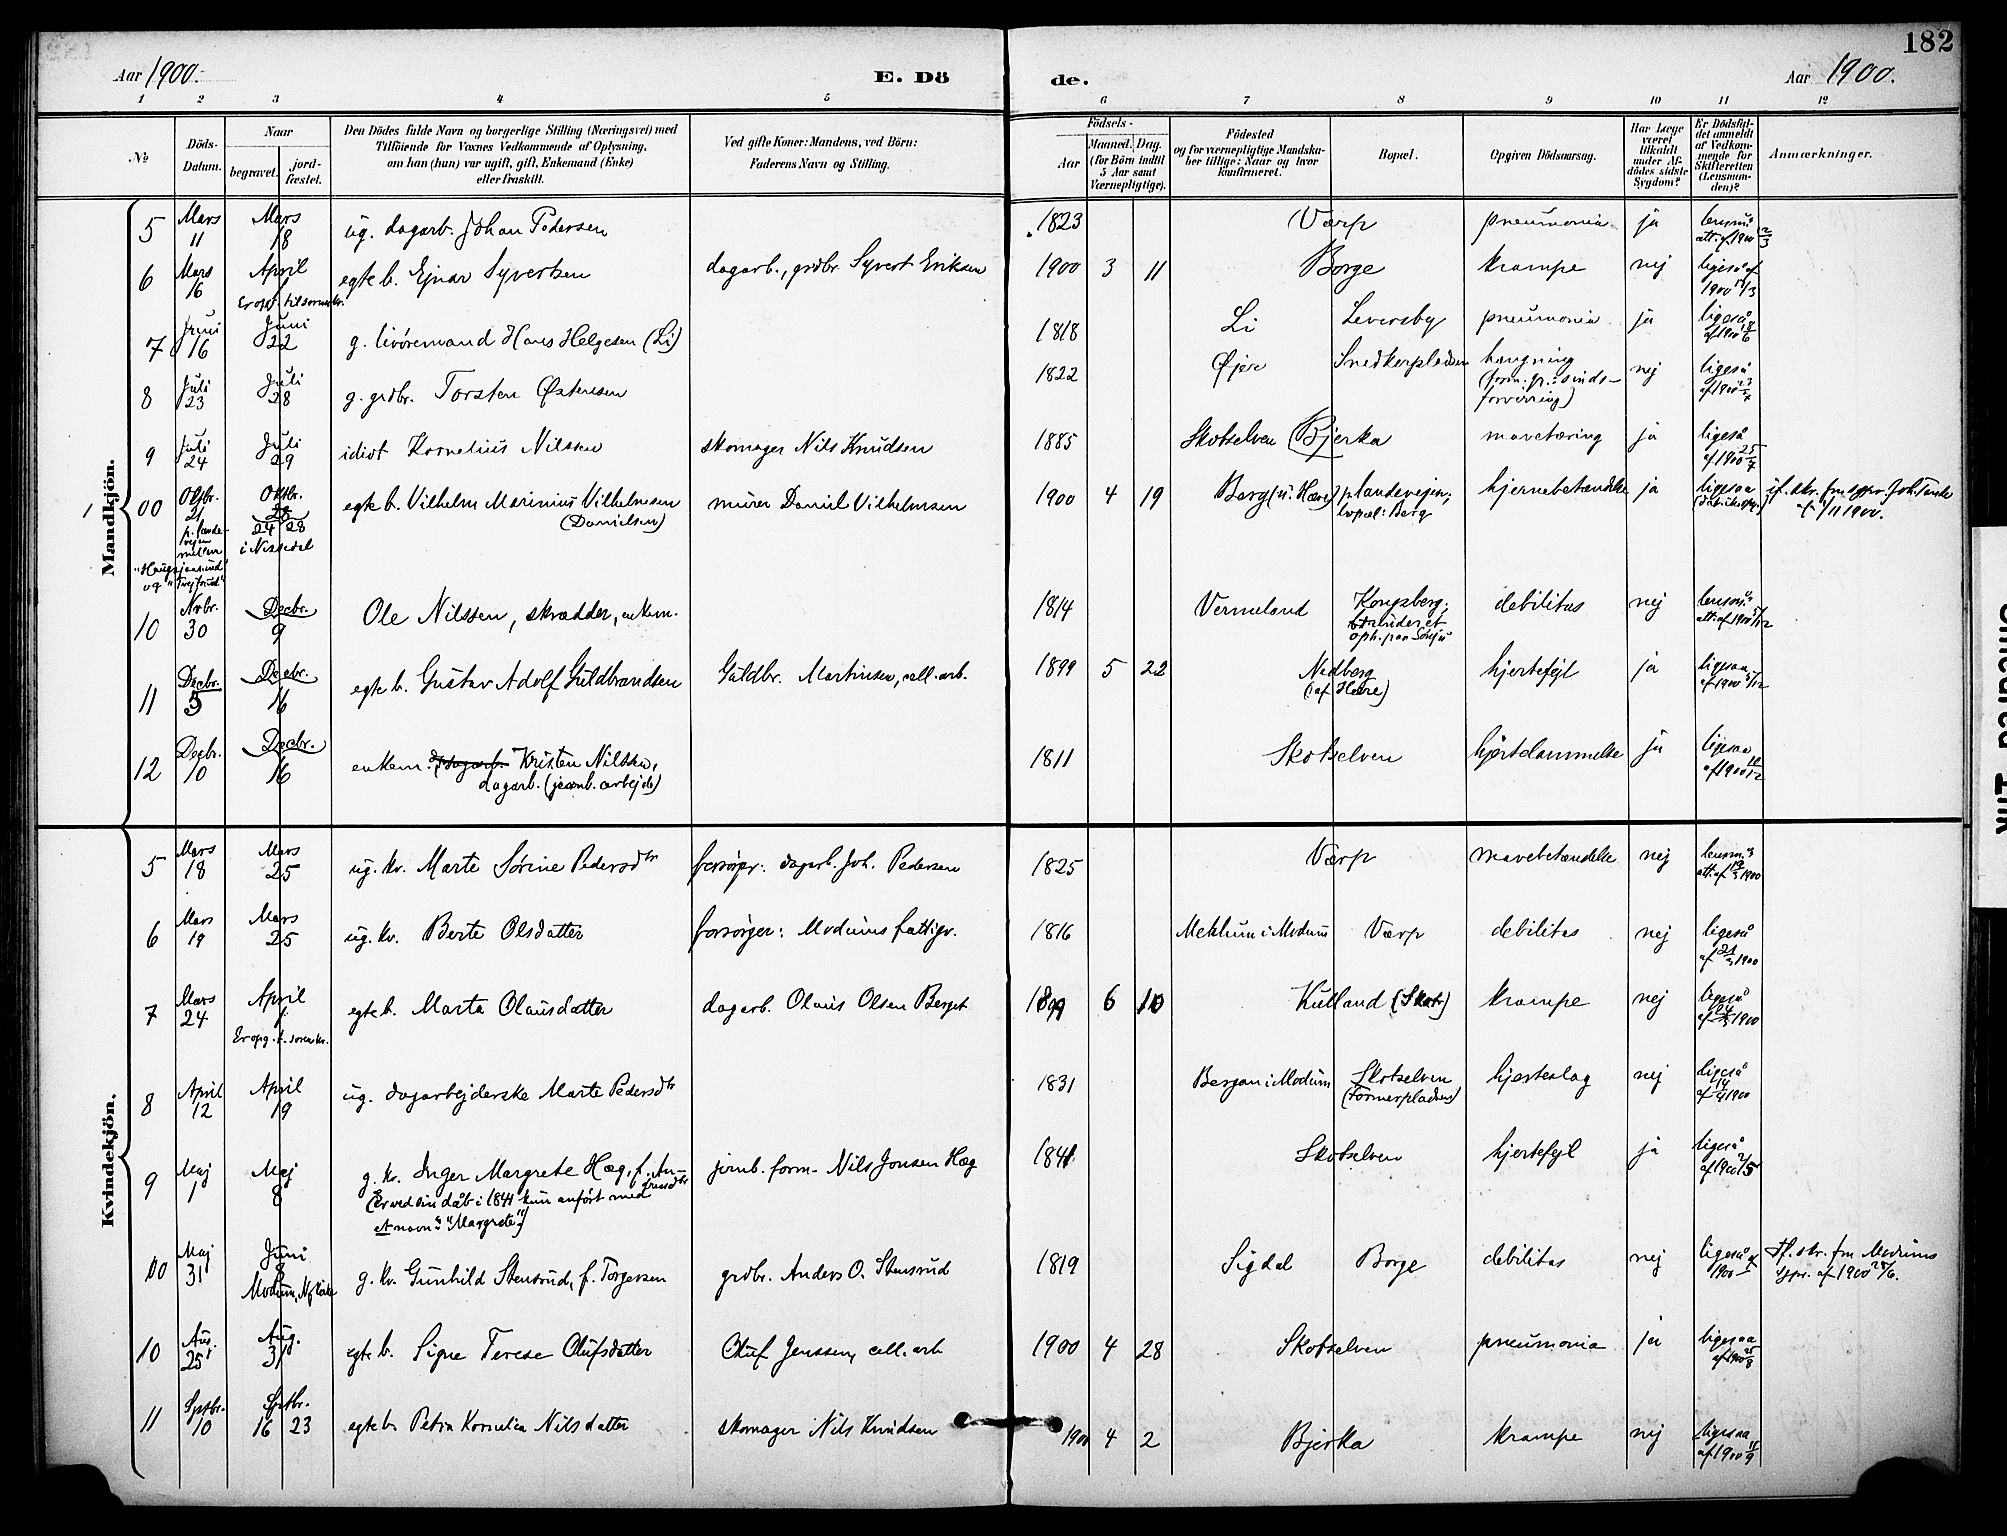 182
Aar 1900.
E. Dö
de.
Aar 1900.
1 2 3 4 5 6 7 8 9 10 11 12
No
Döds-
Datum.
Naar
begravet.
jord-
fæstet.
Den Dödes fulde Navn og borgerlige Stilling (Næringsvei) med
Tilföiende for Voxnes Vedkommende af Oplysning,
om han (hun) var ugift, gift, Enkemand (Enke)
eller fraskilt.
Ved gifte Koner: Mandens, ved Börn:
Faderens Navn og Stilling.
Födsels-
Aar
Maaned.
Dag.
(for Börn indtil
5 Aar samt
Værnepligtige).
Födested
og for værnepligtige Mandska-
ber tillige: Naar og hvor
konfirmeret.
Bopæl.
Opgiven Dödsaarsag.
Har Læge
været
tilkaldt
under Af-
dödes sidste
Sygdom?
Er Dödsfal-
det anmeldt
af Vedkom-
mende for
Skifteretten
(Lensman-
den)?
Anmærkninger.
Mandkjön.
5 Mars 11 Mars 18 ug. dagarb. Johan Pedersen 1823 Værp pneumonia ja lensm. att. af 1900 12/3
6 Mars 16 April 1 egte b. Ejnar Syvertsen dagarb., grdbr. Syvert Eriksen 1900 3 11 Borge krampe nej ligeså af 1900 /3
Er opg. til sornekr.
7 Juni 16 Juni 22 g. livöremand Hans Helgesen (Li) 1818 Li Leversby pneumonia ja ligeså af 1900 /6
8 Juli 23 Juli 28 g. grdbr. Torsten Østensen 1822 Øjer Snedkerpladsen hængning nej ligeså af 1900 23/7
(form. gr.: sinds-
forvirring)
9 Juli 24 Juli 29 idiot Kornelius Nilssen skomager Nils Knudsen 1885 Skotselven (Bjerka mavetæring ja ligeså af 1900 25/7
00 Oktbr. 21 Oktbr. 28 egte b. Vilhelm Marinius Vilhelmsen murer Daniel Vilhelmsen 1900 4 19 Berg (u. Hære) p landevejen; hjernebetændelse ja ligesaa
(Danielsen)
bopæl: Berg
af /11 1900.
p. lande-
vejen
mellem
24 28
i Nissedal
10 Nvbr. 30 Decbr. 9 Ole Nilssen, skrædder, enkem. 1814 Vermeland Kongsberg; debilitas nej lensm. att. af 1900 5/12
11 Decbr. 5 Decbr. 16 egte b. Gustav Adolf Guldbrandsen Guldbr. Martinsen, cell. arb. 1899 5 22 Nedberg hjertefejl ja ligesaa af 1900 5/12
(af Hære)
12 Decbr. 10 Decbr. 16 enkem. Kristen Nilssen, 1811 Skotselven hjertelammelse ja ligesaa af 1900 10/12
dagarb. (jernb. arbejde)
Kvindekjön.
5 Mars 18 Mars 25 ug. kv. Marte Sörine Pedersdtr forsörger: dagarb. Joh. Pedersen 1825 Værp mavebetændelse nej lensm.s att. af 19/3 1900
6 Mars 19 Mars 25 ug. kv. Berte Olsdatter forsörger: Modums fattigv. 1816 Mehlum i Modum Værp debilitas nej ligeså af 21/3 1900
7 Mars 24 April 1 egte b. Marta Olausdatter dagarb. Olaus Olsen Berget 1899 6 10 Kulland (Skot.) krampe nej ligeså af 24/3 1900
Er opg. t. sornekr.
8 April 12 April 19 ug. dagarbejderske Marte Pedersdtr 1831 Bergan i Modum Skotselven hjerteslag nej ligeså af 14/4 1900
(Formerpladsen)
9 Maj 1 Maj 8 g. kv. Inger Margrete Hæg, f. An- jernb. form. Nils Jonsen Hæg 1841 Skotselven hjertefejl ja ligeså af 1900 2/5
dresdtr
(Er ved sin dåb i 1841 kun anfört med
et navn: "Margrete")
00 Maj 31 Juni 8 g. kv. Gunhild Stensrud, f. Torgersen grdbr. Anders O. Stensrud 1819 Sigdal Borge debilitas nej ligeså af 1900 If. skr. fm. Modums
Modum, Nykirke
Spr. af 1900 25/6.
10 Aug. 25 Aug. 31 egte b. Signe Terese Olufsdatter Oluf Jenssen, cell. arb. 1900 4 28 Skotselven pneumonia ja ligesaa af 1900 25/8
11 Septbr. 10 Septbr. 16 23 egte b. Petra Kornelia Nilsdatter skomager Nils Knudsen 1900 4 2 Bjerka krampe nej ligesaa af 1900 11/9